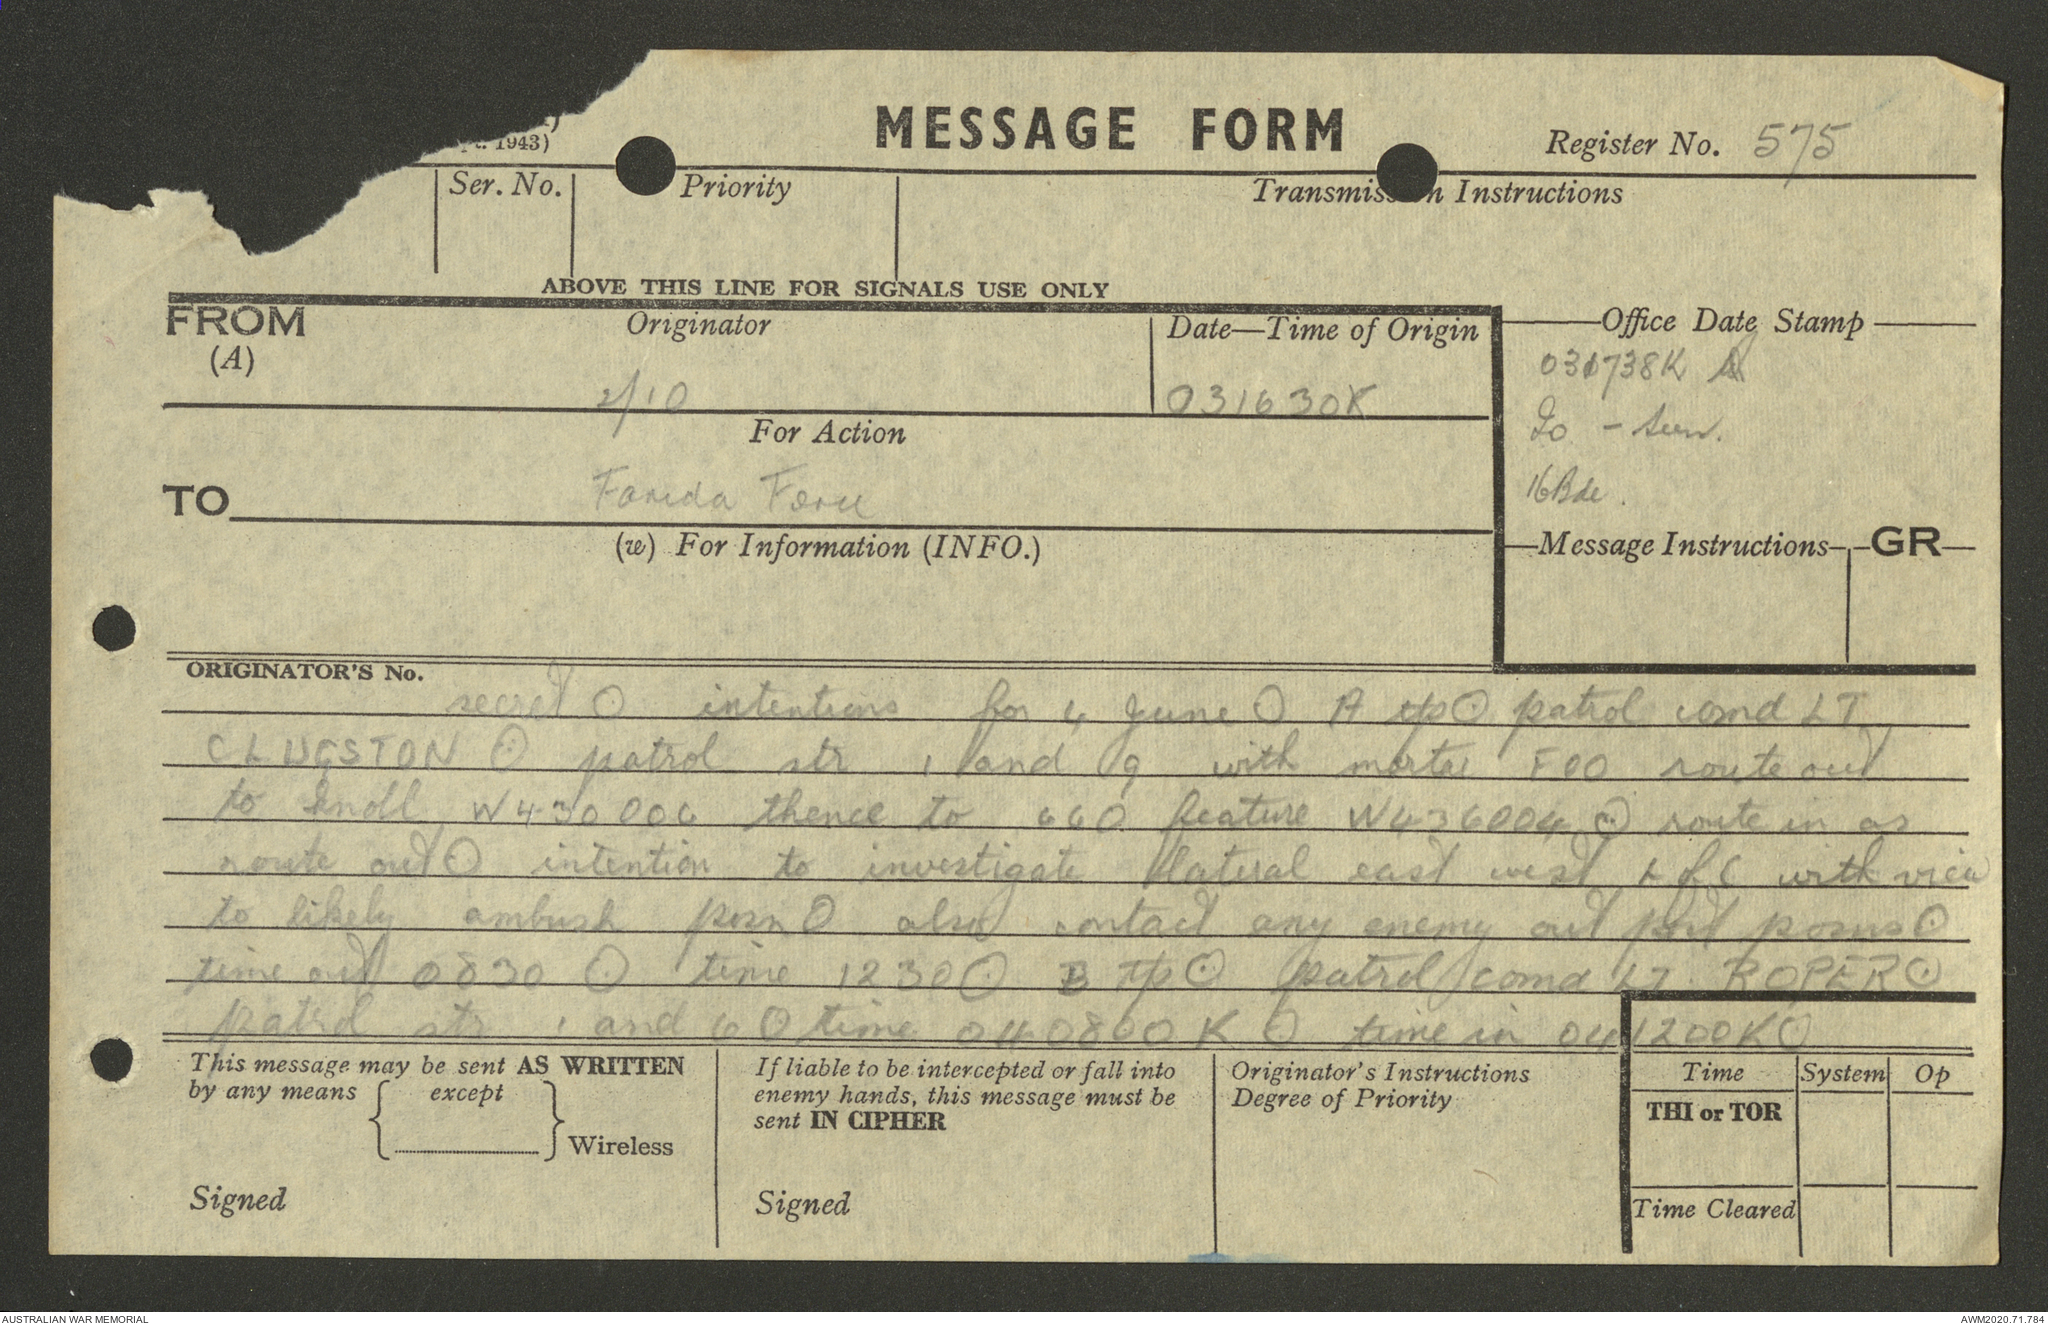 1943)
MESSAGE FORM
Register No. 575
Ser. No.
Priority
Transmission Instructions
ABOVE THIS LINE FOR SIGNALS USE ONLY
FROM
(A)
Originator
Date—Time of Origin
Office Date Stamp
031738K
2/10
031630K
For Action
Io -
TO
Farida Force
16 Bde.
(w) For Information (INFO.)
Message Instructions
GR
ORIGINATOR'S No.
secret ⊙ intentions for 4 June ⊙ A tp ⊙ patrol comd LT
CLUGSTON ⊙ patrol str 1 and 9 with mortar FOO route out
to knoll W430006 thence to 660 feature W436004 ⊙ route in as
route out ⊙ intention to investigate lateral east west L of C with view
to likely ambush posn ⊙ also contact any enemy out post posns ⊙
time out 0830 ⊙ time 1230 ⊙ B Tp ⊙ patrol comd LT ROPER ⊙
patrol str 1 and 6 ⊙ time 040800K ⊙ time in 041200K ⊙
This message may be sent AS WRITTEN
by any means
except
Wireless
Signed
If liable to be intercepted or fall into
enemy hands, this message must be
sent IN CIPHER
Signed
Originator's Instructions
Degree of Priority
Time
System
Op
THI or TOR
Time Cleared
AUSTRALIAN WAR MEMORIAL
AWM2020.71.784